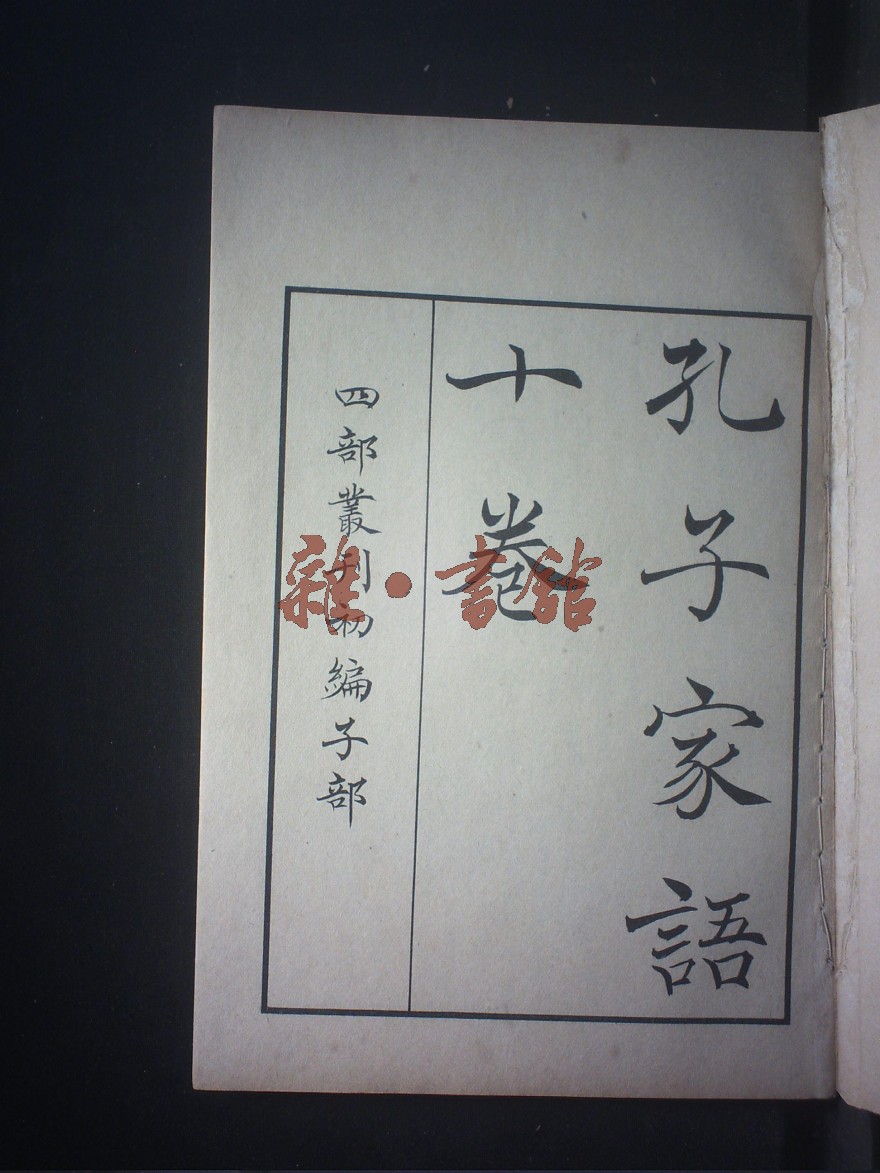 孔子家語
十卷
四部叢刊初編子部
雜·書館